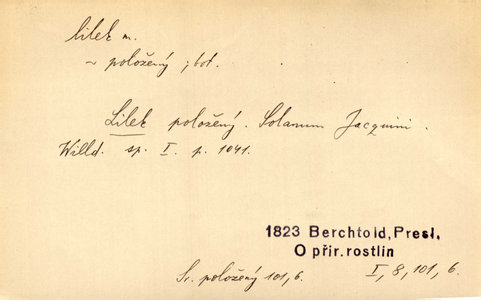 lilek m.
~ položený ; bot.
Lilek položený. Solanum Jacquini.
Willd. sp. I. p. 1041.
1823 Berchtold, Presl,
O přir. rostlin
Sr. položený 101, 6. I, 8, 101, 6.